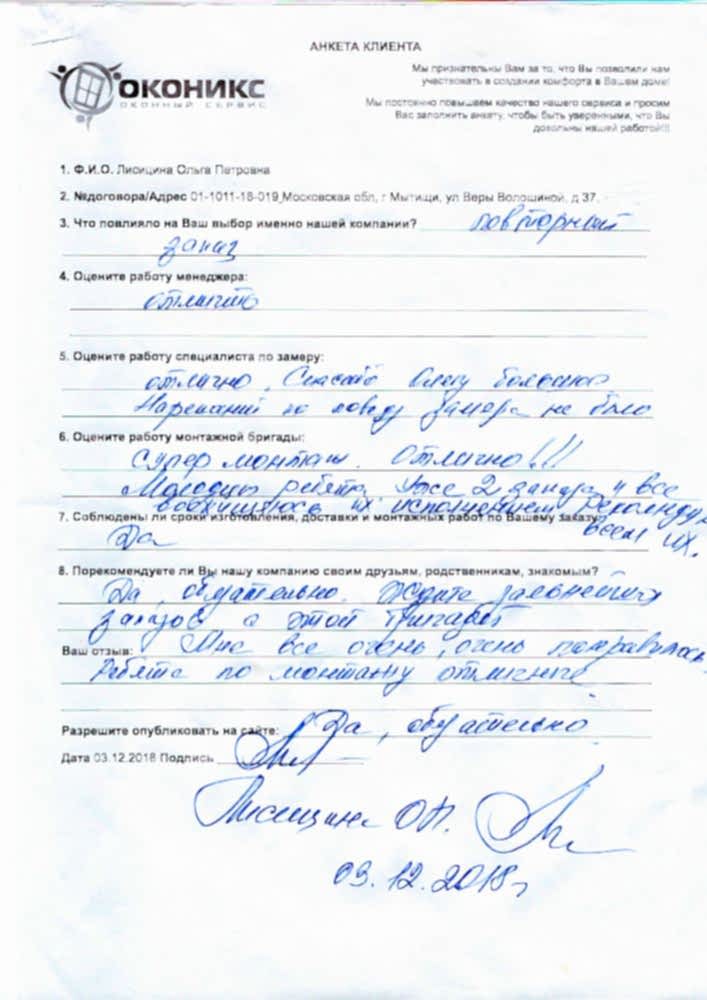 АНКЕТА КЛИЕНТА
ОКОНИКС
ОКОННЫЙ СЕРВИС
Мы признательны Вам за то, что Вы позволили нам
участвовать в создании комфорта в Вашем доме!
Мы постоянно повышаем качество нашего сервиса и просим
Вас заполнить анкету, чтобы быть уверенными, что Вы
довольны нашей работой!!!
1. Ф.И.О. Лисицина Ольга Петровна
2. №договора/Адрес 01-1011-18-019,Московская обл, г Мытищи, ул Веры Волошиной, д 37,
3. Что повлияло на Ваш выбор именно нашей компании? повторный
заказ
4. Оцените работу менеджера:
отлично
5. Оцените работу специалиста по замеру:
отлично. Спасибо Олегу большое
Нареканий по поводу замера не было
6. Оцените работу монтажной бригады:
Супер монтаж. Отлично!!!
Молодцы ребята. Уже 2 заказа и все
восхищаюсь их исполнением Рекомендую
всем их.
7. Соблюдены ли сроки изготовления, доставки и монтажных работ по Вашему заказу?
Да
8. Порекомендуете ли Вы нашу компанию своим друзьям, родственникам, знакомым?
Да, обязательно. Ждите дальнейших
заказов с этой бригадой
Ваш отзыв: Мне все очень, очень понравилось.
Ребята по монтажу отличные
Разрешите опубликовать на сайте: Да, обязательно
Дата 03.12.2018 Подпись
Лисицина О.П.
03.12.2018г